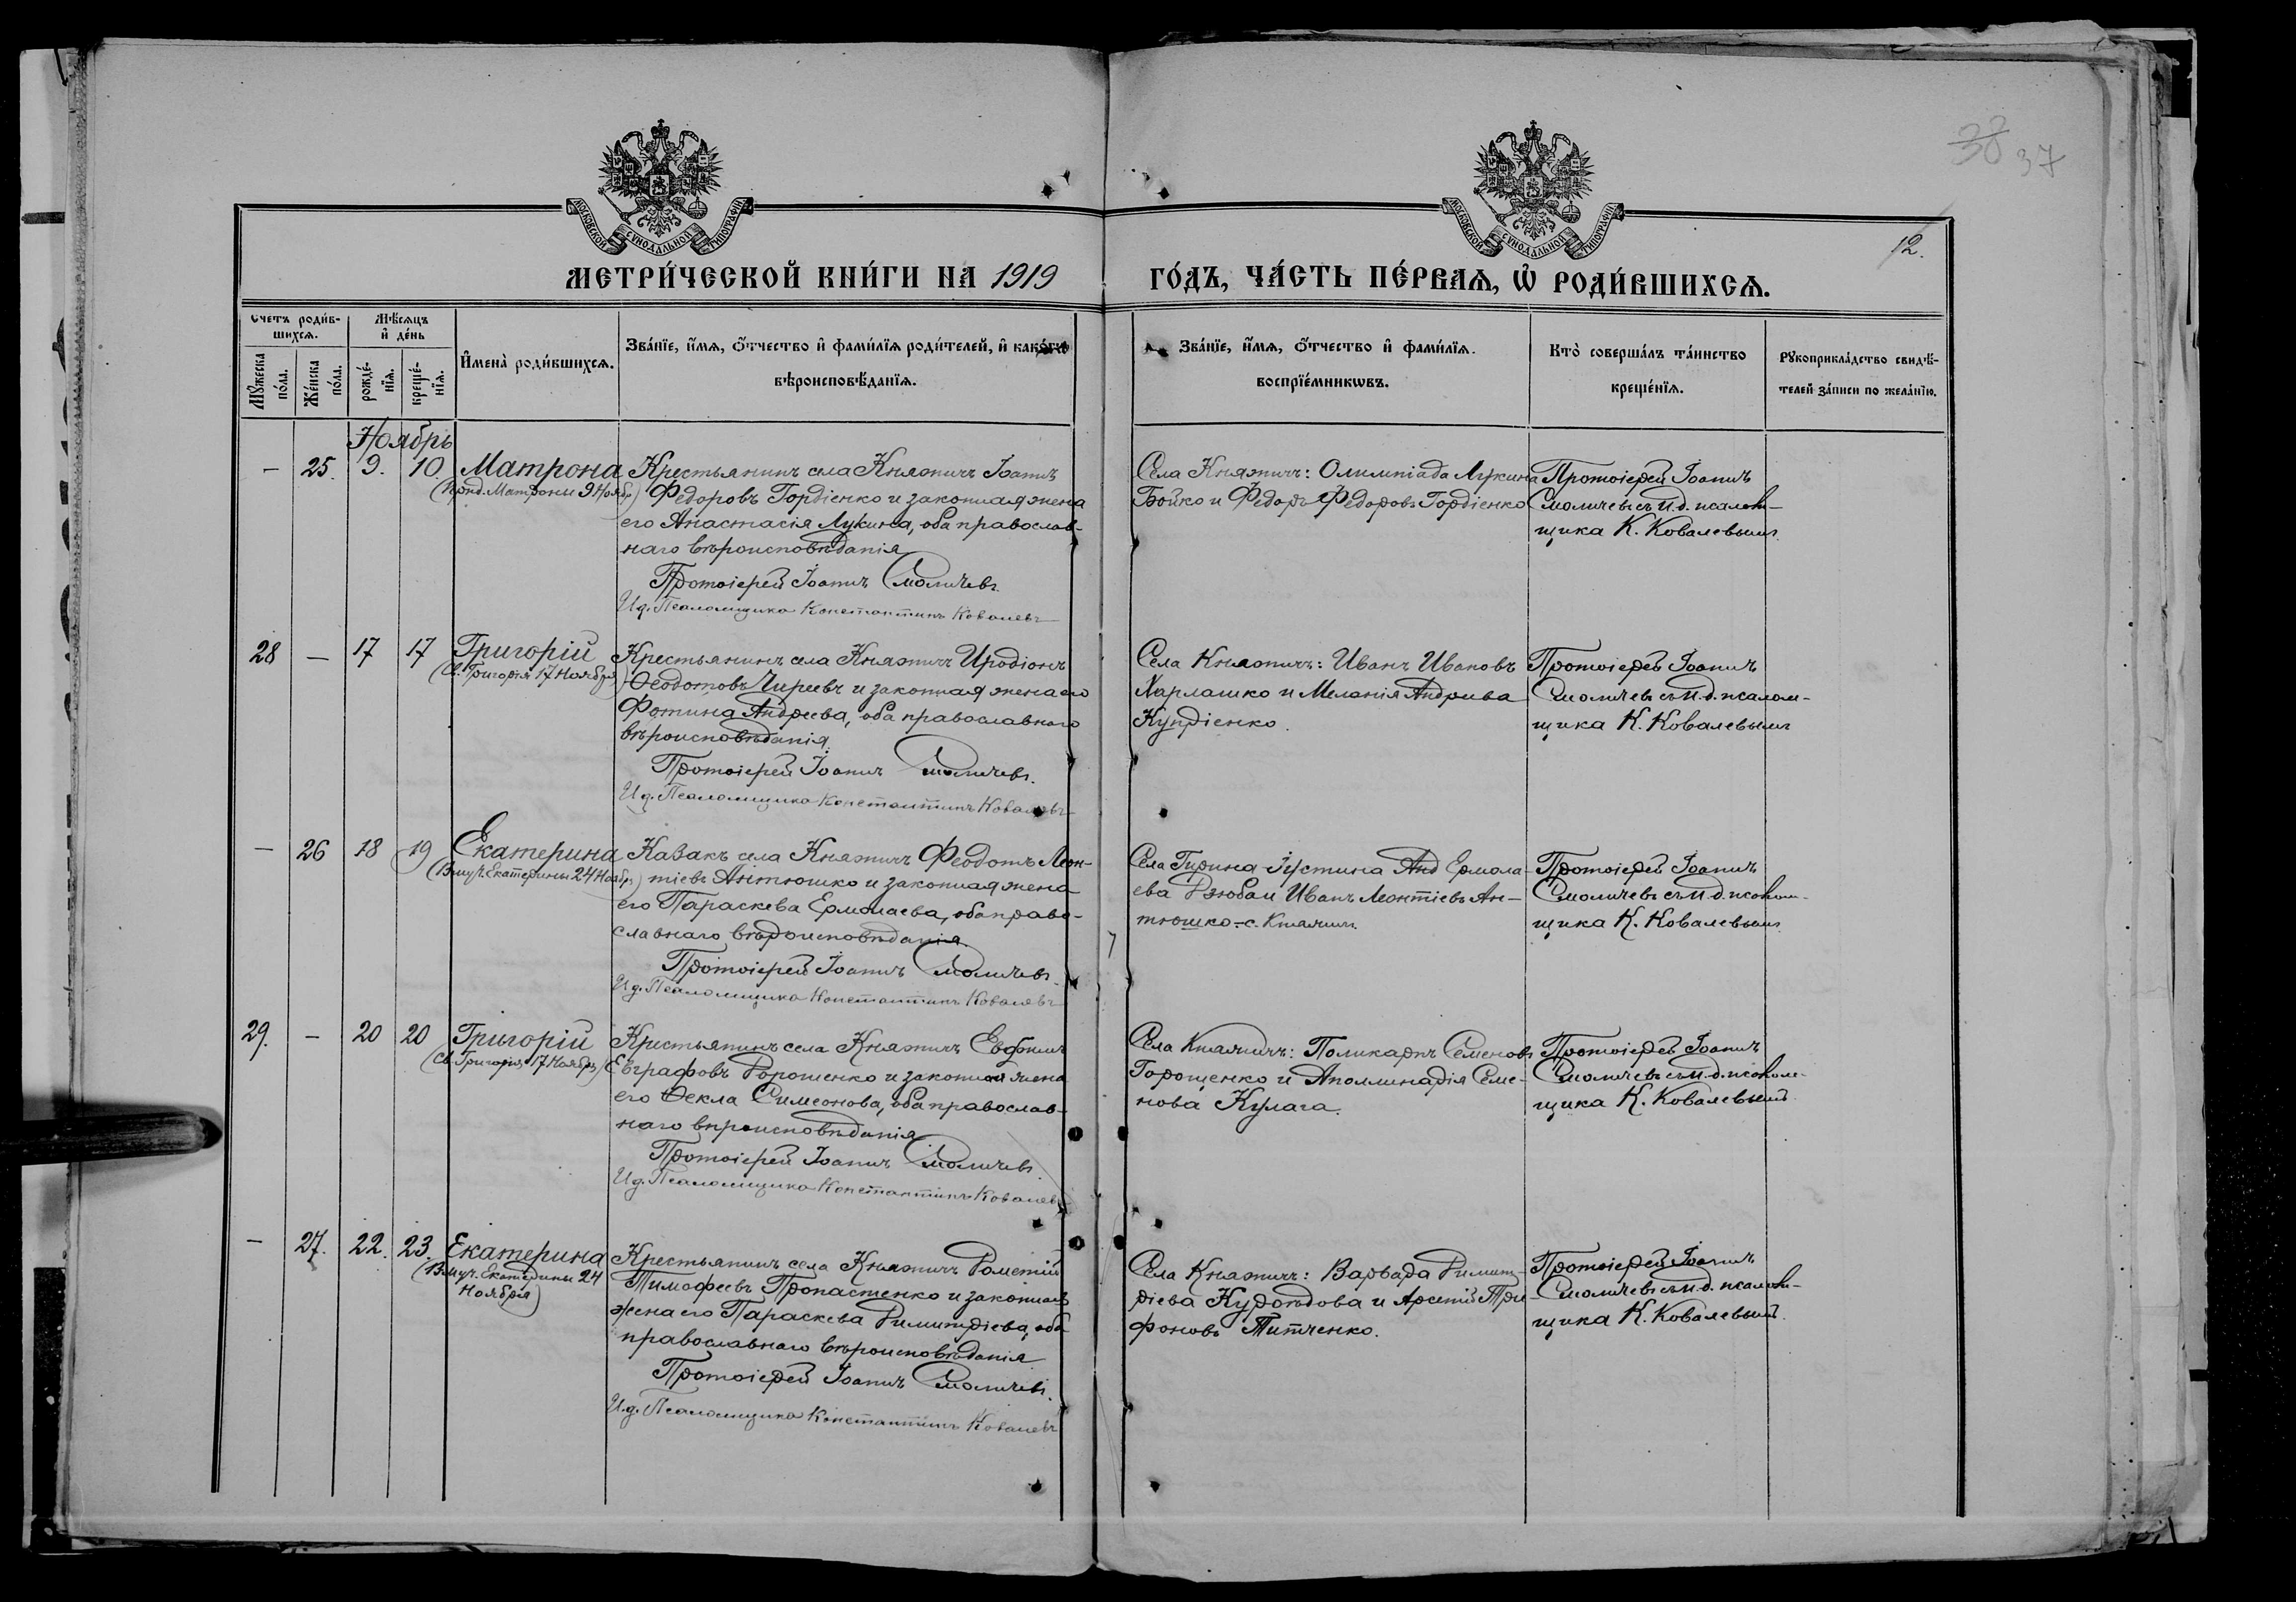 38 37
12.
МОСКОВСКОЙ СѴНОДАЛЬНОЙ ТИПОГРАФІИ
МОСКОВСКОЙ СѴНОДАЛЬНОЙ ТИПОГРАФІИ
МЕТРИ́ЧЕСКОЙ КНИ́ГИ НА 1919 ГО́ДЪ, ЧА́СТЬ ПЕ́РВАѦ, Ѽ РОДИ́ВШИХСѦ.
Счетъ роди́в-
шихсѧ.
Мѣ́сѧцъ
и҆ де́нь
Мꙋ́жеска
по́ла.
Же́нска
по́ла.
рожде́-
нїѧ.
креще́-
нїѧ.
И҆мена̀ роди́вшихсѧ.
Зва́нїе, и҆́мѧ, ѻ҆́тчество и҆ фами́лїѧ роди́телей, и҆ како́гѡ
вѣроисповѣ́данїѧ.
Зва́нїе, и҆́мѧ, ѻ҆́тчество и҆ фами́лїѧ.
воспрїе́мникѡвъ.
Кто̀ соверша́лъ та́инство
креще́нїѧ.
Рꙋкоприкла́дство свидѣ́-
телей за́писи по жела́нїю.
Ноябрь
— 25. 9. 10. Матрона
(Прпд. Матроны 9 Ноябр.)
Крестьянинъ села Княжичъ Іоаннъ
Федоровъ Гордіенко и законная жена
его Анастасія Лукина, оба православ-
наго вѣроисповѣданія
Протоіерей Іоаннъ Смоличевъ.
И.д. Псаломщика Константинъ Ковалевъ
Села Княжичъ: Олимпіада Лукина
Бойко и Федоръ Федоровъ Гордіенко
Протоіерей Іоаннъ
Смоличевъ съ И.д. псалом-
щика К. Ковалевымъ.
28 — 17 17 Григорій
(Св. Григорія 17 Ноября)
Крестьянинъ села Княжичъ Иродіонъ
Ѳеодотовъ Чиревъ и законная жена его
Фотина Андреева, оба православнаго
вѣроисповѣданія.
Протоіерей Іоаннъ Смоличевъ.
И.д. Псаломщика Константинъ Ковалевъ
Села Княжичъ: Иванъ Ивановъ
Харлашко и Меланія Андреева
Купріенко.
Протоіерей Іоаннъ
Смоличевъ съ И.д. псалом-
щика К. Ковалевымъ
— 26 18 19 Екатерина
(Вмуч. Екатерины 24 Ноябр.)
Казакъ села Княжичъ Феодотъ Леон-
тіевъ Антюшко и законная жена
его Параскева Ермолаева, оба право-
славнаго вѣроисповѣданія.
Протоіерей Іоаннъ Смоличевъ.
И.д. Псаломщика Константинъ Ковалевъ
Села Гирина Іустина Анд Ермола-
ева Дзюба и Иванъ Леонтіевъ Ан-
тюшко - с. Княжичъ.
Протоіерей Іоаннъ
Смоличевъ съ И.д. псалом-
щика К. Ковалевымъ
29. — 20 20 Григорій
(Св. Григорія 17 Ноября)
Крестьянинъ села Княжичъ Евфимъ
Евграфовъ Дорошенко и законная жена
его Ѳекла Симеонова, оба православ-
наго вѣроисповѣданія
Протоіерей Іоаннъ Смоличевъ.
И.д. Псаломщика Константинъ Ковалевъ
Села Княжичъ: Поликарпъ Семеновъ
Горощенко и Аполлинарія Семе-
нова Кулага.
Протоіерей Іоаннъ
Смоличевъ съ И.д. псалом-
щика К. Ковалевымъ
— 27. 22. 23. Екатерина
(Вмуч. Екатерины 24
Ноября)
Крестьянинъ села Княжичъ Дометій
Тимофеевъ Пропастенко и законная
жена его Параскева Димитріева, оба
православнаго вѣроисповѣданія
Протоіерей Іоаннъ Смоличевъ.
И.д. Псаломщика Константинъ Ковалевъ
Села Княжичъ: Варвара Димит-
ріева Куроѣдова и Арсеній Три-
фоновъ Титченко.
Протоіерей Іоаннъ
Смоличевъ съ И.д. псалом-
щика К. Ковалевымъ.